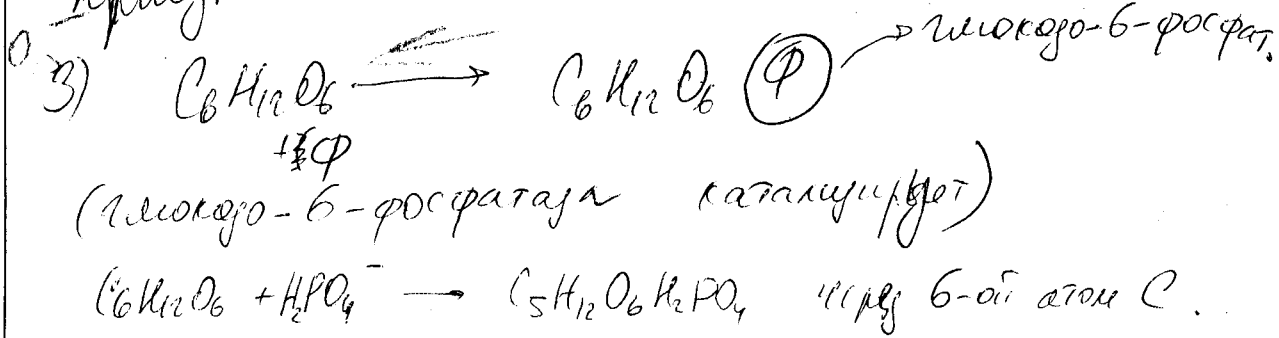 3) C6H12O6 → C6H12O6 Ф → глюкозо-6-фосфат.
+Ф
(глюкозо-6-фосфатаза катализирует)
C6H12O6 + H2PO4⁻ → C5H12O6H2PO4 через 6-ой атом C.